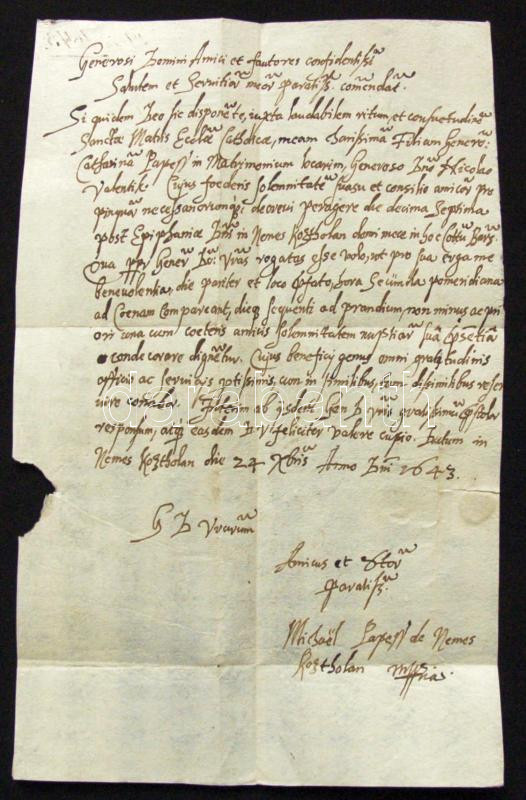 Generosi Domini Amici et fautores confidentissi
Salutem et Servitior meor paratiss. comendat.
Siquidem Deo sic disponete, iuxta laudabilem ritum, et consvetudine
Sanctæ Matris Ecclæ Catholicæ, meam Charissima Filiam Generos:
Catharina Papess in Matrimonium locarim, Generoso Dno Nicolao
Valentik. Cujus foederis solemnitate suasu et consilio amicor pro
pinquor necessariorumq3 decrevi peragere die decima Septima
post Epiphaniæ Dni in Nemes Kosztholan domi meæ in hoc Cottu Bars.
Qua ppr Gener D: Vras rogatas esse volo, vt pro sua erga me
benevolentia, die pariter et loco pfato, hora Secunda pomeridiana
ad Coenam compareant, dieq3 sequenti ad prandium, non minus ac pri
ori una cum coeteris amicis solemnitatem nuptiar sua psentia
condecorare dignetur. Cujus beneficij genus omni gratitudinis
officio ac servitijs potissimis, cum in similibus, tum dissimilibus reser
vire conabor. Interim ab ijsdem Gen D Vris gratissimu
responsum, atq3 easdem D V feliciter valere cupio. Datum in
Nemes Kosztholan die 24 Xbris Anno Dni 1643.
G D Vrarum
Amicus et Stor
Paratiss.
Michaël Papess de Nemes
Kosztholan mpria.
darabanth